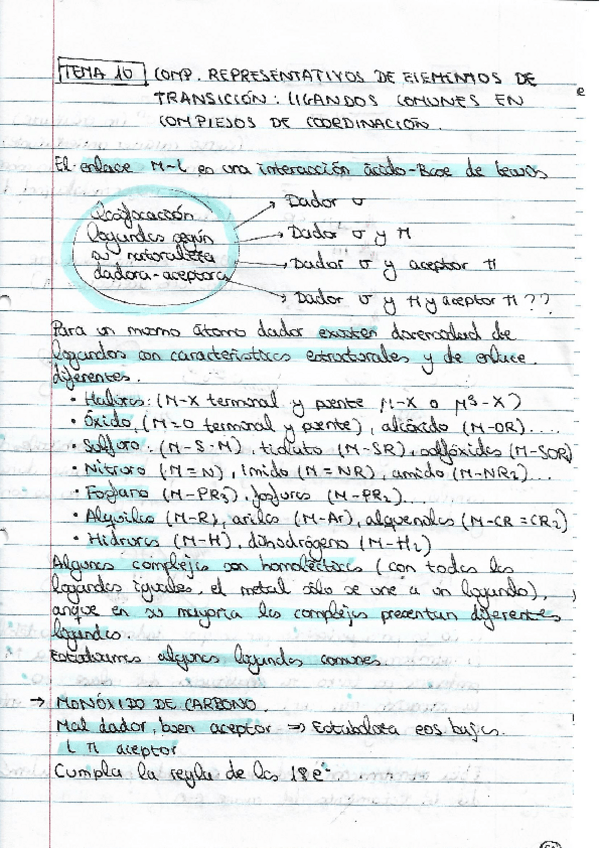 TEMA 10 COMP. REPRESENTATIVOS DE ELEMENTOS DE
TRANSICIÓN: LIGANDOS COMUNES EN
COMPLEJOS DE COORDINACIÓN.
El enlace M-L es una interacción ácido-Base de Lewis
Clasificación
ligandos según
su naturaleza
dadora-aceptora
Dador σ
Dador σ y π
Dador σ y aceptor π
Dador σ y π y aceptor π ??
Para un mismo átomo dador existen diversidad de
ligandos con características estructurales y de enlace
diferentes.
• Haluros: (M-X terminal y puente μ-X o μ³-X)
• Óxido, (M=O terminal y puente), alcóxido (M-OR)....
• Sulfuro: (M-S-M), tiolato (M-SR), sulfóxidos (M-SOR)
• Nitruro (M≡N), imido (M=NR), amido (M-NR2)...
• Fosfano (M-PR3), fosfuros (M-PR2)...
• Alquilos (M-R), arilos (M-Ar), alquenilos (M-CR=CR2)
• Hidruros (M-H), dihidrógeno (M-H2)
Algunos complejos son homolécticos (con todos los
ligandos iguales, el metal sólo se une a un ligando),
anque en su mayoría los complejos presentan diferentes
ligandos.
Estudiaremos algunos ligandos comunes.
→ MONÓXIDO DE CARBONO.
Mal dador, buen aceptor ⇒ Estabiliza eos bajos.
L π aceptor
Cumpla la regla de los 18e⁻